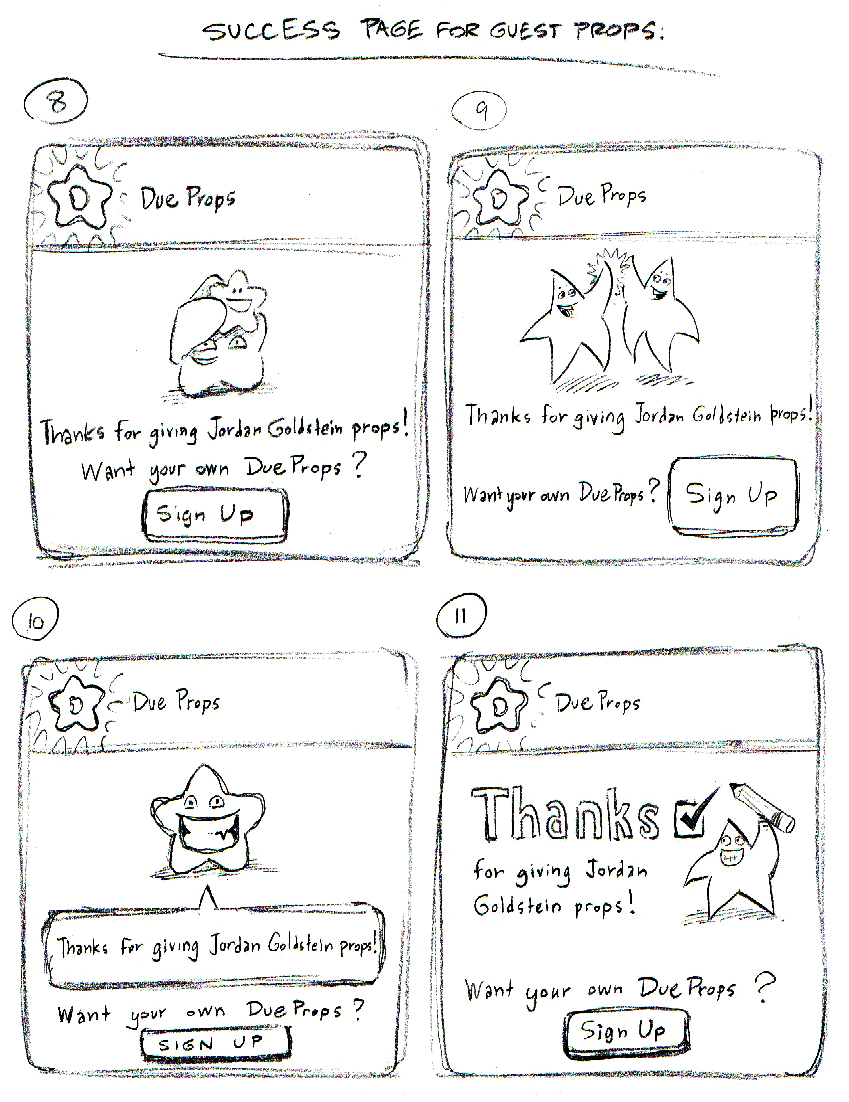 SUCCESS PAGE FOR GUEST PROPS:
8
D
Due Props
Thanks for giving Jordan Goldstein props!
Want your own DueProps?
Sign Up
9
D
Due Props
Thanks for giving Jordan Goldstein props!
Want your own DueProps?
Sign Up
10
D
Due Props
Thanks for giving Jordan Goldstein props!
Want your own DueProps?
SIGN UP
11
D
Due Props
Thanks
for giving Jordan
Goldstein props!
Want your own DueProps?
Sign Up